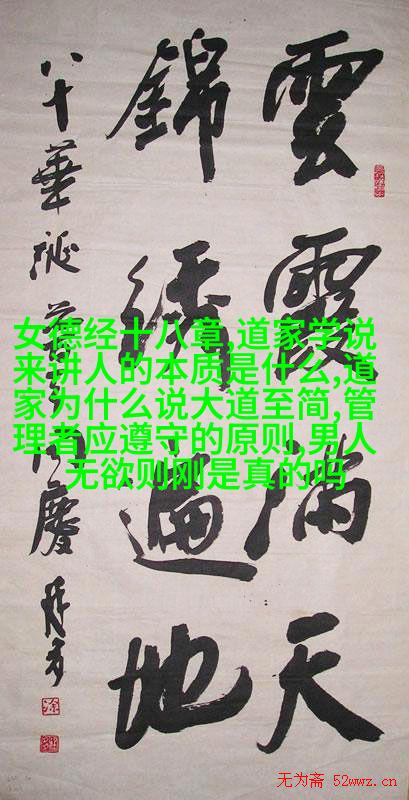 雲霞滿天
錦綉遍地
八十華誕同慶
女德经十八章,道家学说
来讲人的本质是什么,道
家为什么说大道至简,管
理者应遵守的原则,男人
无欲则刚是真的吗
无为斋 52wwz.cn